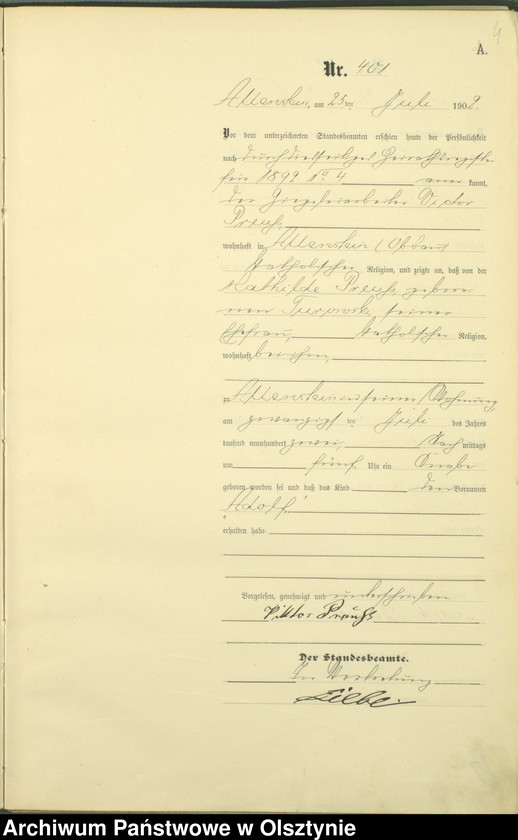 4
A.
Nr. 401
Allenstein, am 25ten Juli 1902.
Vor dem unterzeichneten Standesbeamten erschien heute der Persönlichkeit
nach durch die
für 1899 No 4 kannt,
der Ziegeleiarbeiter Victor
Preuß,
wohnhaft in Allenstein (Abbau)
katholischer Religion, und zeigte an, daß von der
Mathilde Preuß, gebore
nen seiner
Ehefrau, katholischer Religion,
wohnhaft bei ihm,
zu Allenstein in seiner Wohnung
am zwanzigsten Juli des Jahres
tausend neunhundert zwei, Nach mittags
um fünf Uhr ein Knabe
geboren worden sei und daß das Kind den Vornamen
"Adolf"
erhalten habe.
Vorgelesen, genehmigt und unterschrieben
Viktor Preuß
Der Standesbeamte.
In Vertretung
Archiwum Państwowe w Olsztynie